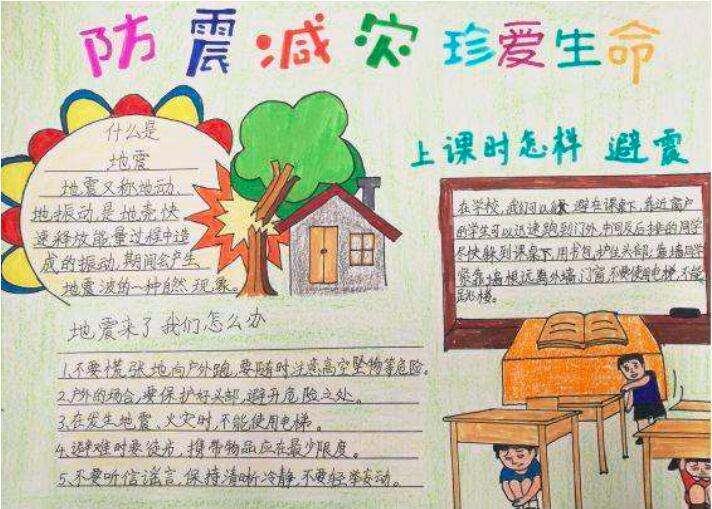 防震减灾 珍爱生命
什么是
地震
地震又称地动、
地振动是地壳快
速释放能量过程中造
成的振动,期间会产生
地震波的一种自然现象。
上课时怎样 避震
在学校,我们可以 避在课桌下,靠近窗户
的学生可以迅速跑到门外,中间及后排的同学
尽快躲到课桌下,用书包护住头部;靠墙同学
紧靠墙根远离外墙、门窗,不要使用电梯,不能
跳楼。
地震来了我们怎么办
1.不要慌张地向户外跑,要随时注意高空坠物等危险。
2.户外的场合,要保护好头部,避开危险之处。
3.在发生地震、火灾时,不能使用电梯。
4.避难时要徒步,携带物品应在最少限度。
5.不要听信谣言,保持清晰冷静,不要轻举妄动。